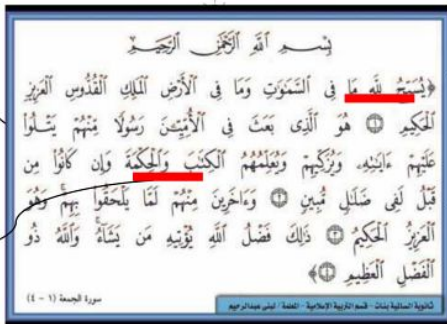 بِسْمِ اللَّهِ الرَّحْمَٰنِ الرَّحِيمِ
﴿يُسَبِّحُ لِلَّهِ مَا فِي السَّمَٰوَٰتِ وَمَا فِي الْأَرْضِ الْمَلِكِ الْقُدُّوسِ الْعَزِيزِ
الْحَكِيمِ ۝١ هُوَ الَّذِي بَعَثَ فِي الْأُمِّيِّـۧنَ رَسُولًا مِّنْهُمْ يَتْلُوا۟
عَلَيْهِمْ ءَايَٰتِهِۦ وَيُزَكِّيهِمْ وَيُعَلِّمُهُمُ الْكِتَٰبَ وَالْحِكْمَةَ وَإِن كَانُوا۟ مِن
قَبْلُ لَفِي ضَلَٰلٍ مُّبِينٍ ۝٢ وَءَاخَرِينَ مِنْهُمْ لَمَّا يَلْحَقُوا۟ بِهِمْ ۚ وَهُوَ
الْعَزِيزُ الْحَكِيمُ ۝٣ ذَٰلِكَ فَضْلُ اللَّهِ يُؤْتِيهِ مَن يَشَآءُ ۚ وَاللَّهُ ذُو
الْفَضْلِ الْعَظِيمِ ۝٤﴾
سورة الجمعة (١ - ٤)
ثانوية السالمية بنات - قسم التربية الإسلامية - المعلمة / لبنى عبدالرحيم